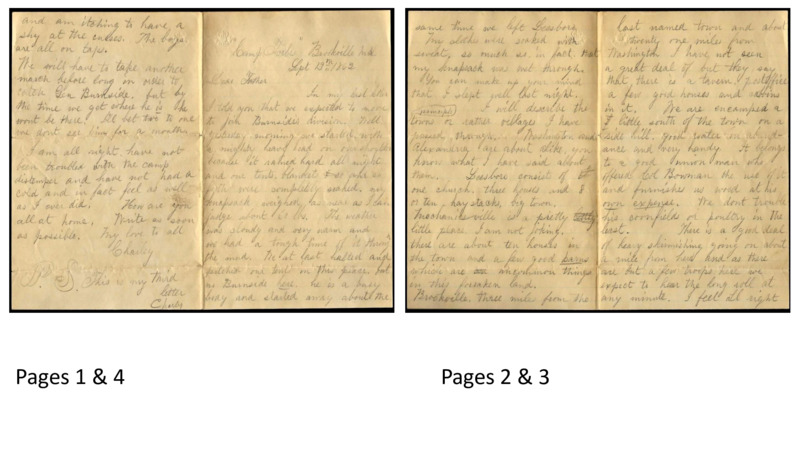 and am itching to have a
shy at the cusses. The boys
are all on taps.
We will have to take another
march before long in order to
catch Gen Burnside. but by
the time we get where he is he
wont be there. Ill bet two to one
we dont see him for a month
I am all right. have not
been troubled with the camp
distemper and have not had a
cold and in fact feel as well
as I ever did. How are you
all at home. Write as soon
as possible. My love to all
Charley
P. S. This is my third
letter
Charley
"Camp" Brookville Md.
Sept 13th 1862
Dear Father
In my last letter
I told you that we expected to move
to join Burnsides division. Well
yesterday morning we started, with
a mighty heavy load on our shoulders
because it rained hard all night
and our tents, blankets &
were completely soaked, my
knapsack weighed, as near as I can
judge about lbs. The weather
was cloudy and very warm and
we had a tough time of it
the march. We at last halted and
pitched our tents in this place, but
no Burnside here. he is a busy
body and started away about the
same time we left Leesboro.
My clothes were soaked with
sweat, so much so, in fact that
my knapsack was wet through.
You can make up your mind
that I slept well last night.
I will describe the
towns or rather villages I have
passed through. Washington and
Alexandria are about alike, you
know what I have said about
them. Leesboro consist of
one church, three houses and 8
or ten hay stacks, big town.
Mechanicsville is a pretty
little place I am not joking.
there are about ten houses in
the town and a few good barns
which are uncommon things
in this forsaken land.
Brookville three miles from the
last named town and about
twenty one miles from
Washington I have not seen
a great deal of but they say
that there is a tavern, postoffice
a few good houses and
in it. We are encamped a
little south of the town on a
side hill, good water in abund-
ance and very handy. It belongs
to a good Union man who
offered Col Bowman the use of it
and furnishes us wood at his
own expense. We dont trouble
his cornfields or poultry in the
least. There is a good deal
of heavy skirmishing going on about
a mile from here and as there
are but a few troops here we
expect to hear the long roll at
any minute. I feel all right
Pages 1 & 4
Pages 2 & 3